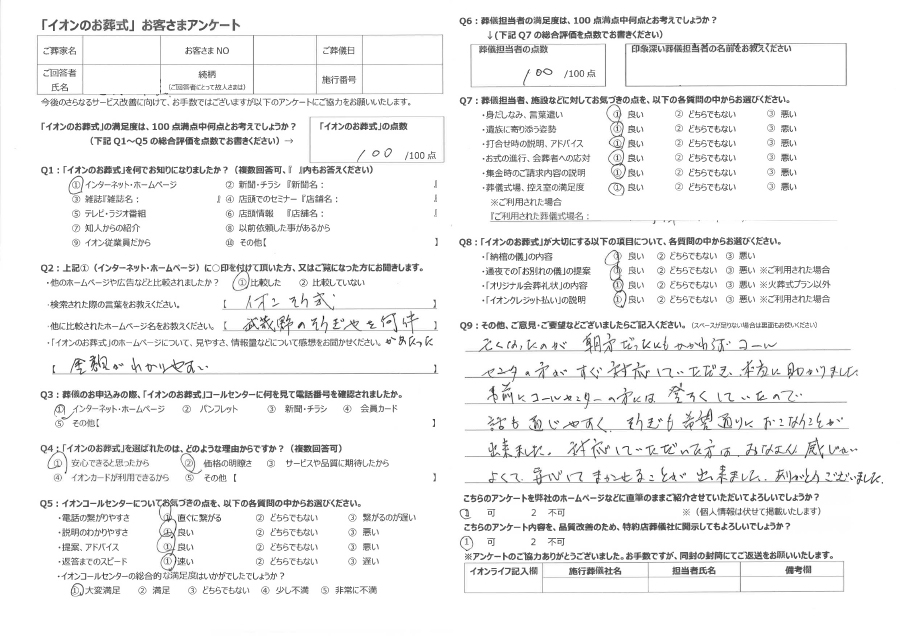 「イオンのお葬式」お客さまアンケート
ご葬家名 お客さまNO ご葬儀日
ご回答者氏名 続柄(ご回答者にとって故人さまは) 施行番号
今後のさらなるサービス改善に向けて、お手数ではございますが以下のアンケートにご協力をお願いいたします。
「イオンのお葬式」の満足度は、100点満点中何点とお考えでしょうか?
(下記Q1~Q5の総合評価を点数でお書きください)→
「イオンのお葬式」の点数
100 /100点
Q1:「イオンのお葬式」を何でお知りになりましたか?(複数回答可、『 』内もお答えください)
① インターネット・ホームページ ② 新聞・チラシ『新聞名: 』
③ 雑誌『雑誌名: 』 ④ 店頭でのセミナー『店舗名: 』
⑤ テレビ・ラジオ番組 ⑥ 店頭情報 『店舗名: 』
⑦ 知人からの紹介 ⑧ 以前依頼した事があるから
⑨ イオン従業員だから ⑩ その他【 】
Q2:上記①(インターネット・ホームページ)に○印を付けて頂いた方、又はご覧になった方にお聞きします。
・他のホームページや広告などと比較されましたか? ①比較した ② 比較していない
・検索された際の言葉をお教えください。 【 イオン そう式 】
・他に比較されたホームページ名をお教えください。 【 武蔵野のそうぎやを何件 】
かあたった
・「イオンのお葬式」のホームページについて、見やすさ、情報量などについて感想をお聞かせください。
【 金額がわかりやすい 】
Q3:葬儀のお申込みの際、「イオンのお葬式」コールセンターに何を見て電話番号を確認されましたか。
① インターネット・ホームページ ② パンフレット ③ 新聞・チラシ ④ 会員カード
⑤ その他【 】
Q4:「イオンのお葬式」を選ばれたのは、どのような理由からですか?(複数回答可)
① 安心できると思ったから ② 価格の明瞭さ ③ サービスや品質に期待したから
④ イオンカードが利用できるから ⑤ その他【 】
Q5:イオンコールセンターについてお気づきの点を、以下の各質問の中からお選びください。
・電話の繋がりやすさ ① 直ぐに繋がる ② どちらでもない ③ 繋がるのが遅い
・説明のわかりやすさ ① 良い ② どちらでもない ③ 悪い
・提案、アドバイス ① 良い ② どちらでもない ③ 悪い
・返答までのスピード ① 速い ② どちらでもない ③ 遅い
・イオンコールセンターの総合的な満足度はいかがでしたでしょうか?
① 大変満足 ② 満足 ③ どちらでもない ④ 少し不満 ⑤ 非常に不満
Q6:葬儀担当者の満足度は、100点満点中何点とお考えでしょうか?
↓(下記Q7の総合評価を点数でお書きください)
葬儀担当者の点数 印象深い葬儀担当者の名前をお教えください
100 /100点
Q7:葬儀担当者、施設などに対してお気づきの点を、以下の各質問の中からお選びください。
・身だしなみ、言葉遣い ① 良い ② どちらでもない ③ 悪い
・遺族に寄り添う姿勢 ① 良い ② どちらでもない ③ 悪い
・打合せ時の説明、アドバイス ① 良い ② どちらでもない ③ 悪い
・お式の進行、会葬者への応対 ① 良い ② どちらでもない ③ 悪い
・集金時のご請求内容の説明 ① 良い ② どちらでもない ③ 悪い
・葬儀式場、控え室の満足度 ① 良い ② どちらでもない ③ 悪い
※ご利用された場合
『ご利用された葬儀式場名:
Q8:「イオンのお葬式」が大切にする以下の項目について、各質問の中からお選びください。
・「納棺の儀」の内容 ① 良い ② どちらでもない ③ 悪い
・通夜での「お別れの儀」の提案 ① 良い ② どちらでもない ③ 悪い ※ご利用された場合
・「オリジナル会葬礼状」の内容 ① 良い ② どちらでもない ③ 悪い ※火葬式プラン以外
・「イオンクレジット払い」の説明 ① 良い ② どちらでもない ③ 悪い ※ご利用された場合
Q9:その他、ご意見・ご要望などございましたらご記入ください。(スペースが足りない場合は裏面もお使いください)
亡くなったのが 朝方だったにもかかわらず コール
センターの方が すぐ 対応していただき、本当に助かりました
事前にコールセンターの方には 登ろくしていたので
話も通じやすく、そうぎも希望通りに おこなうことが
出来ました。 対応していただいた方は、みなさん感じが
よくて、安心して まかせることが 出来ました。ありがとうございました。
こちらのアンケートを弊社のホームページなどに直筆のままご紹介させていただいてよろしいでしょうか?
1 可 2 不可 ※(個人情報は伏せて掲載いたします)
こちらのアンケート内容を、品質改善のため、特約店葬儀社に開示してもよろしいでしょうか?
1 可 2 不可
※アンケートのご協力ありがとうございました。お手数ですが、同封の封筒にてご返送をお願いいたします。
イオンライフ記入欄 施行葬儀社名 担当者氏名 備考欄